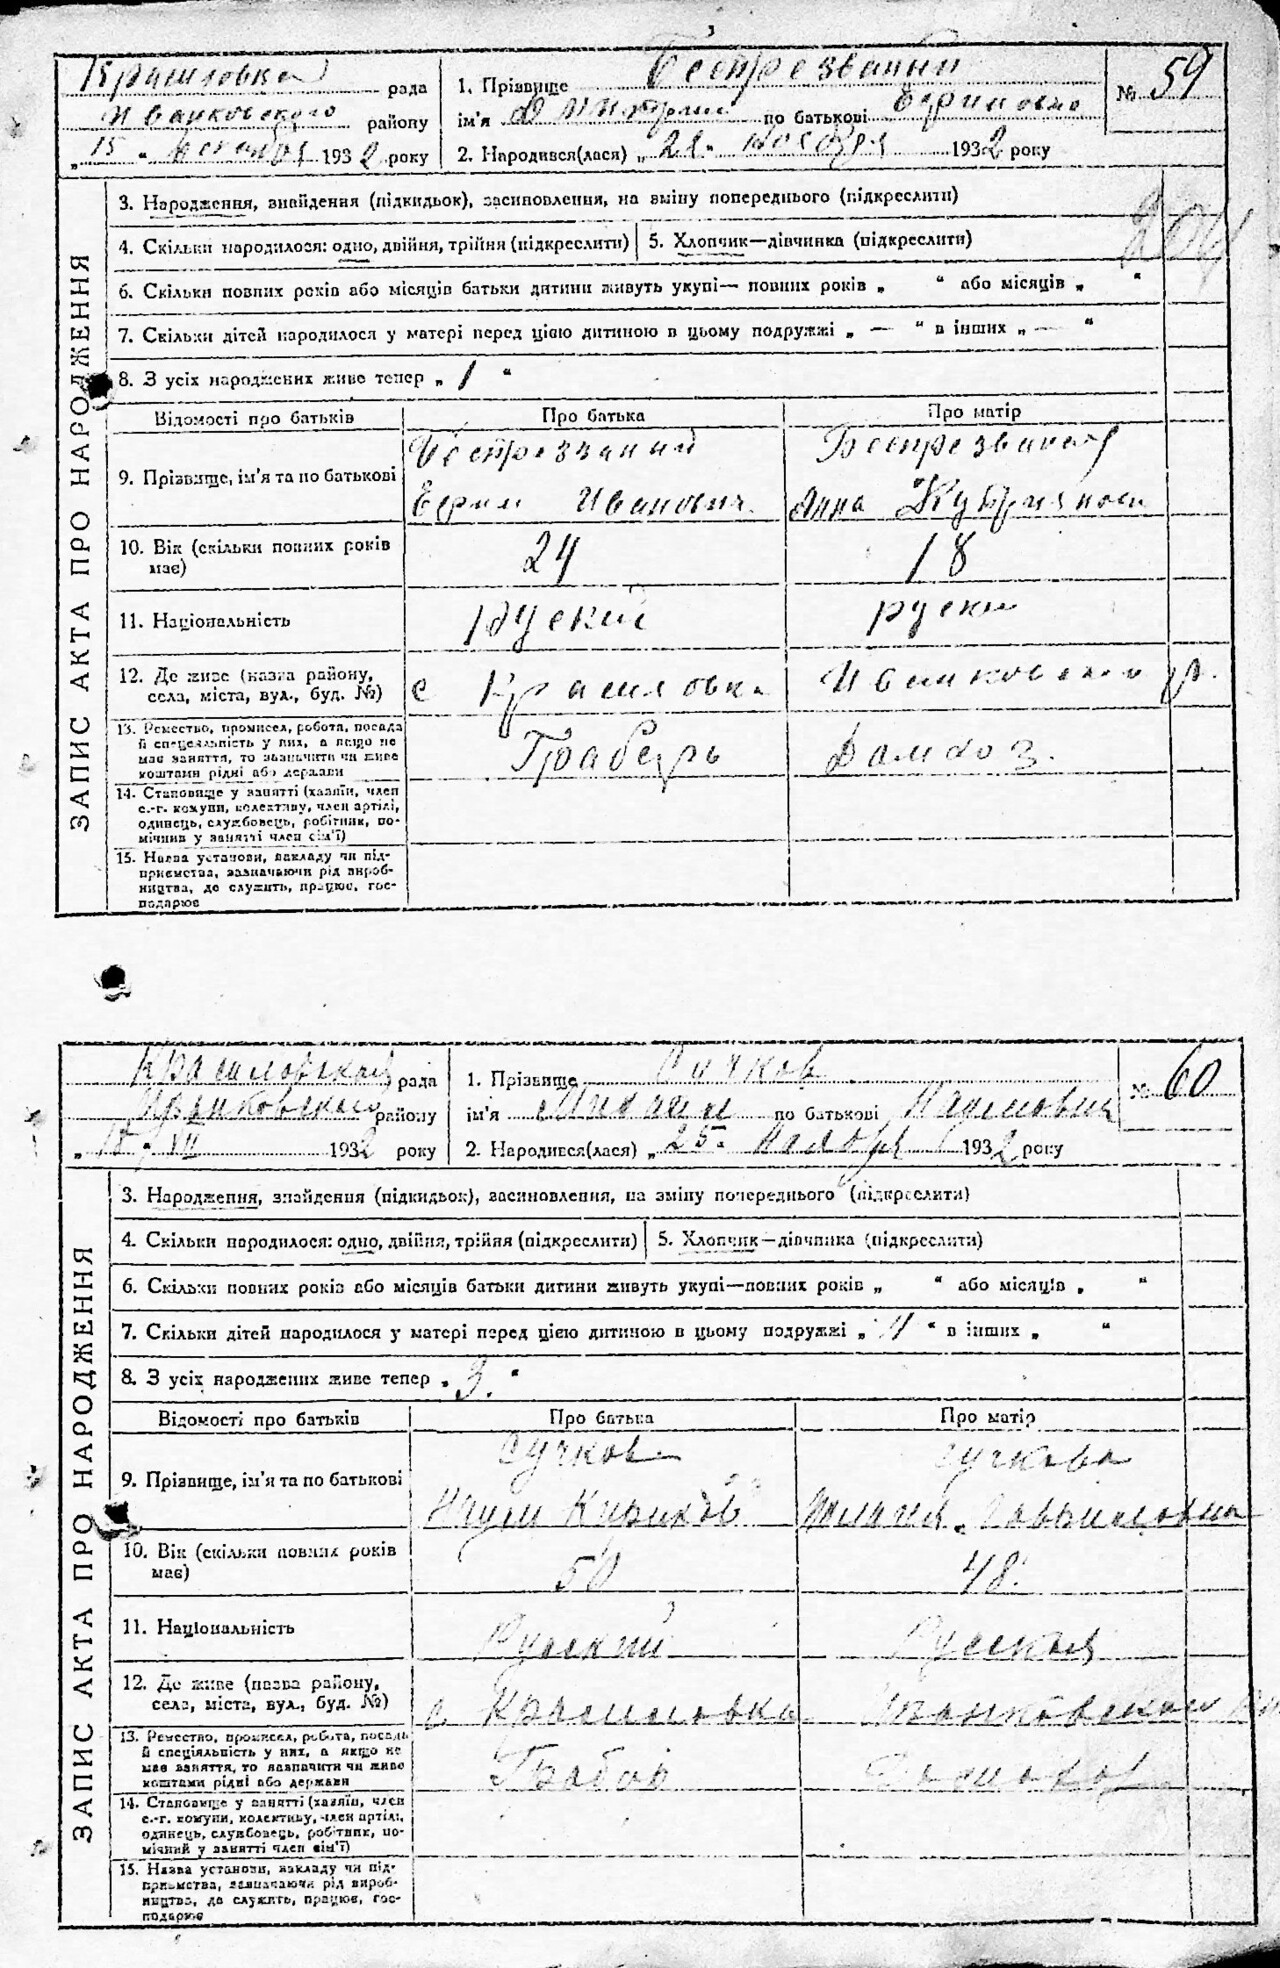 Красиловка рада
Иванковского району
„15 “ декабря 1932 року
1. Прізвище Беспрезваний
ім'я Дмитрий по батькові Ефимович
2. Народився(лася) „21“ ноября 1932 року
№ 59
ЗАПИС АКТА ПРО НАРОДЖЕННЯ
3. Народження, знайдення (підкидьок), засиновлення, на зміну попереднього (підкреслити)
204
4. Скільки народилося: одно, двійня, трійня (підкреслити)
5. Хлопчик—дівчинка (підкреслити)
6. Скільки повних років або місяців батьки дитини живуть укупі— повних років „ “ або місяців „ “
7. Скільки дітей народилося у матері перед цією дитиною в цьому подружжі „ — “ в інших „ — “
8. З усіх народжених живе тепер „ 1 “
Відомості про батьків Про батька Про матір
9. Прізвище, ім'я та по батькові
Беспрезваний
Ефим Иванович
Беспрезваная
Анна
10. Вік (скільки повних років має) 24 18
11. Національність руский руски
12. Де живе (назва району, села, міста, вул., буд. №)
с Красиловка Иванковского р.
13. Ремество, промисел, робота, посада
й спеціяльність у них, а якщо не
має заняття, то зазначити чи живе
коштами рідні або держави
Грабарь Дамхоз.
14. Становище у занятті (хазяїн, член
с.-г. комуни, колективу, член артілі,
одинець, службовець, робітник, по-
мічник у занятті член сім'ї)
15. Назва установи, закладу чи під-
приємства, зазначаючи рід вироб-
ництва, де служить, працює, гос-
подарює
Красиловская рада
Иванковского району
„ 15 “ XII 1932 року
1. Прізвище Сучков
ім'я Михаил по батькові Наумович
2. Народився(лася) „25“ Ноября 1932 року
№ 60
ЗАПИС АКТА ПРО НАРОДЖЕННЯ
3. Народження, знайдення (підкидьок), засиновлення, на зміну попереднього (підкреслити)
4. Скільки народилося: одно, двійня, трійня (підкреслити)
5. Хлопчик—дівчинка (підкреслити)
6. Скільки повних років або місяців батьки дитини живуть укупі—повних років „ “ або місяців „ “
7. Скільки дітей народилося у матері перед цією дитиною в цьому подружжі „ “ в інших „ “
8. З усіх народжених живе тепер „ 3. “
Відомості про батьків Про батька Про матір
9. Прізвище, ім'я та по батькові
Сучков
Наум
Сучкова
Гавриловна
10. Вік (скільки повних років має) 50 48.
11. Національність Руский Русская
12. Де живе (назва району, села, міста, вул., буд. №)
с Красиловка Иванковского
13. Ремество, промисел, робота, посада
й спеціяльність у них, а якщо не
має заняття, то зазначити чи живе
коштами рідні або держави
Грабор
14. Становище у занятті (хазяїн, член
с.-г. комуни, колективу, член артілі,
одинець, службовець, робітник, по-
мічний у занятті член сім'ї)
15. Назва установи, закладу чи під-
приємства, зазначаючи рід вироб-
ництва, де служить, працює, гос-
подарює